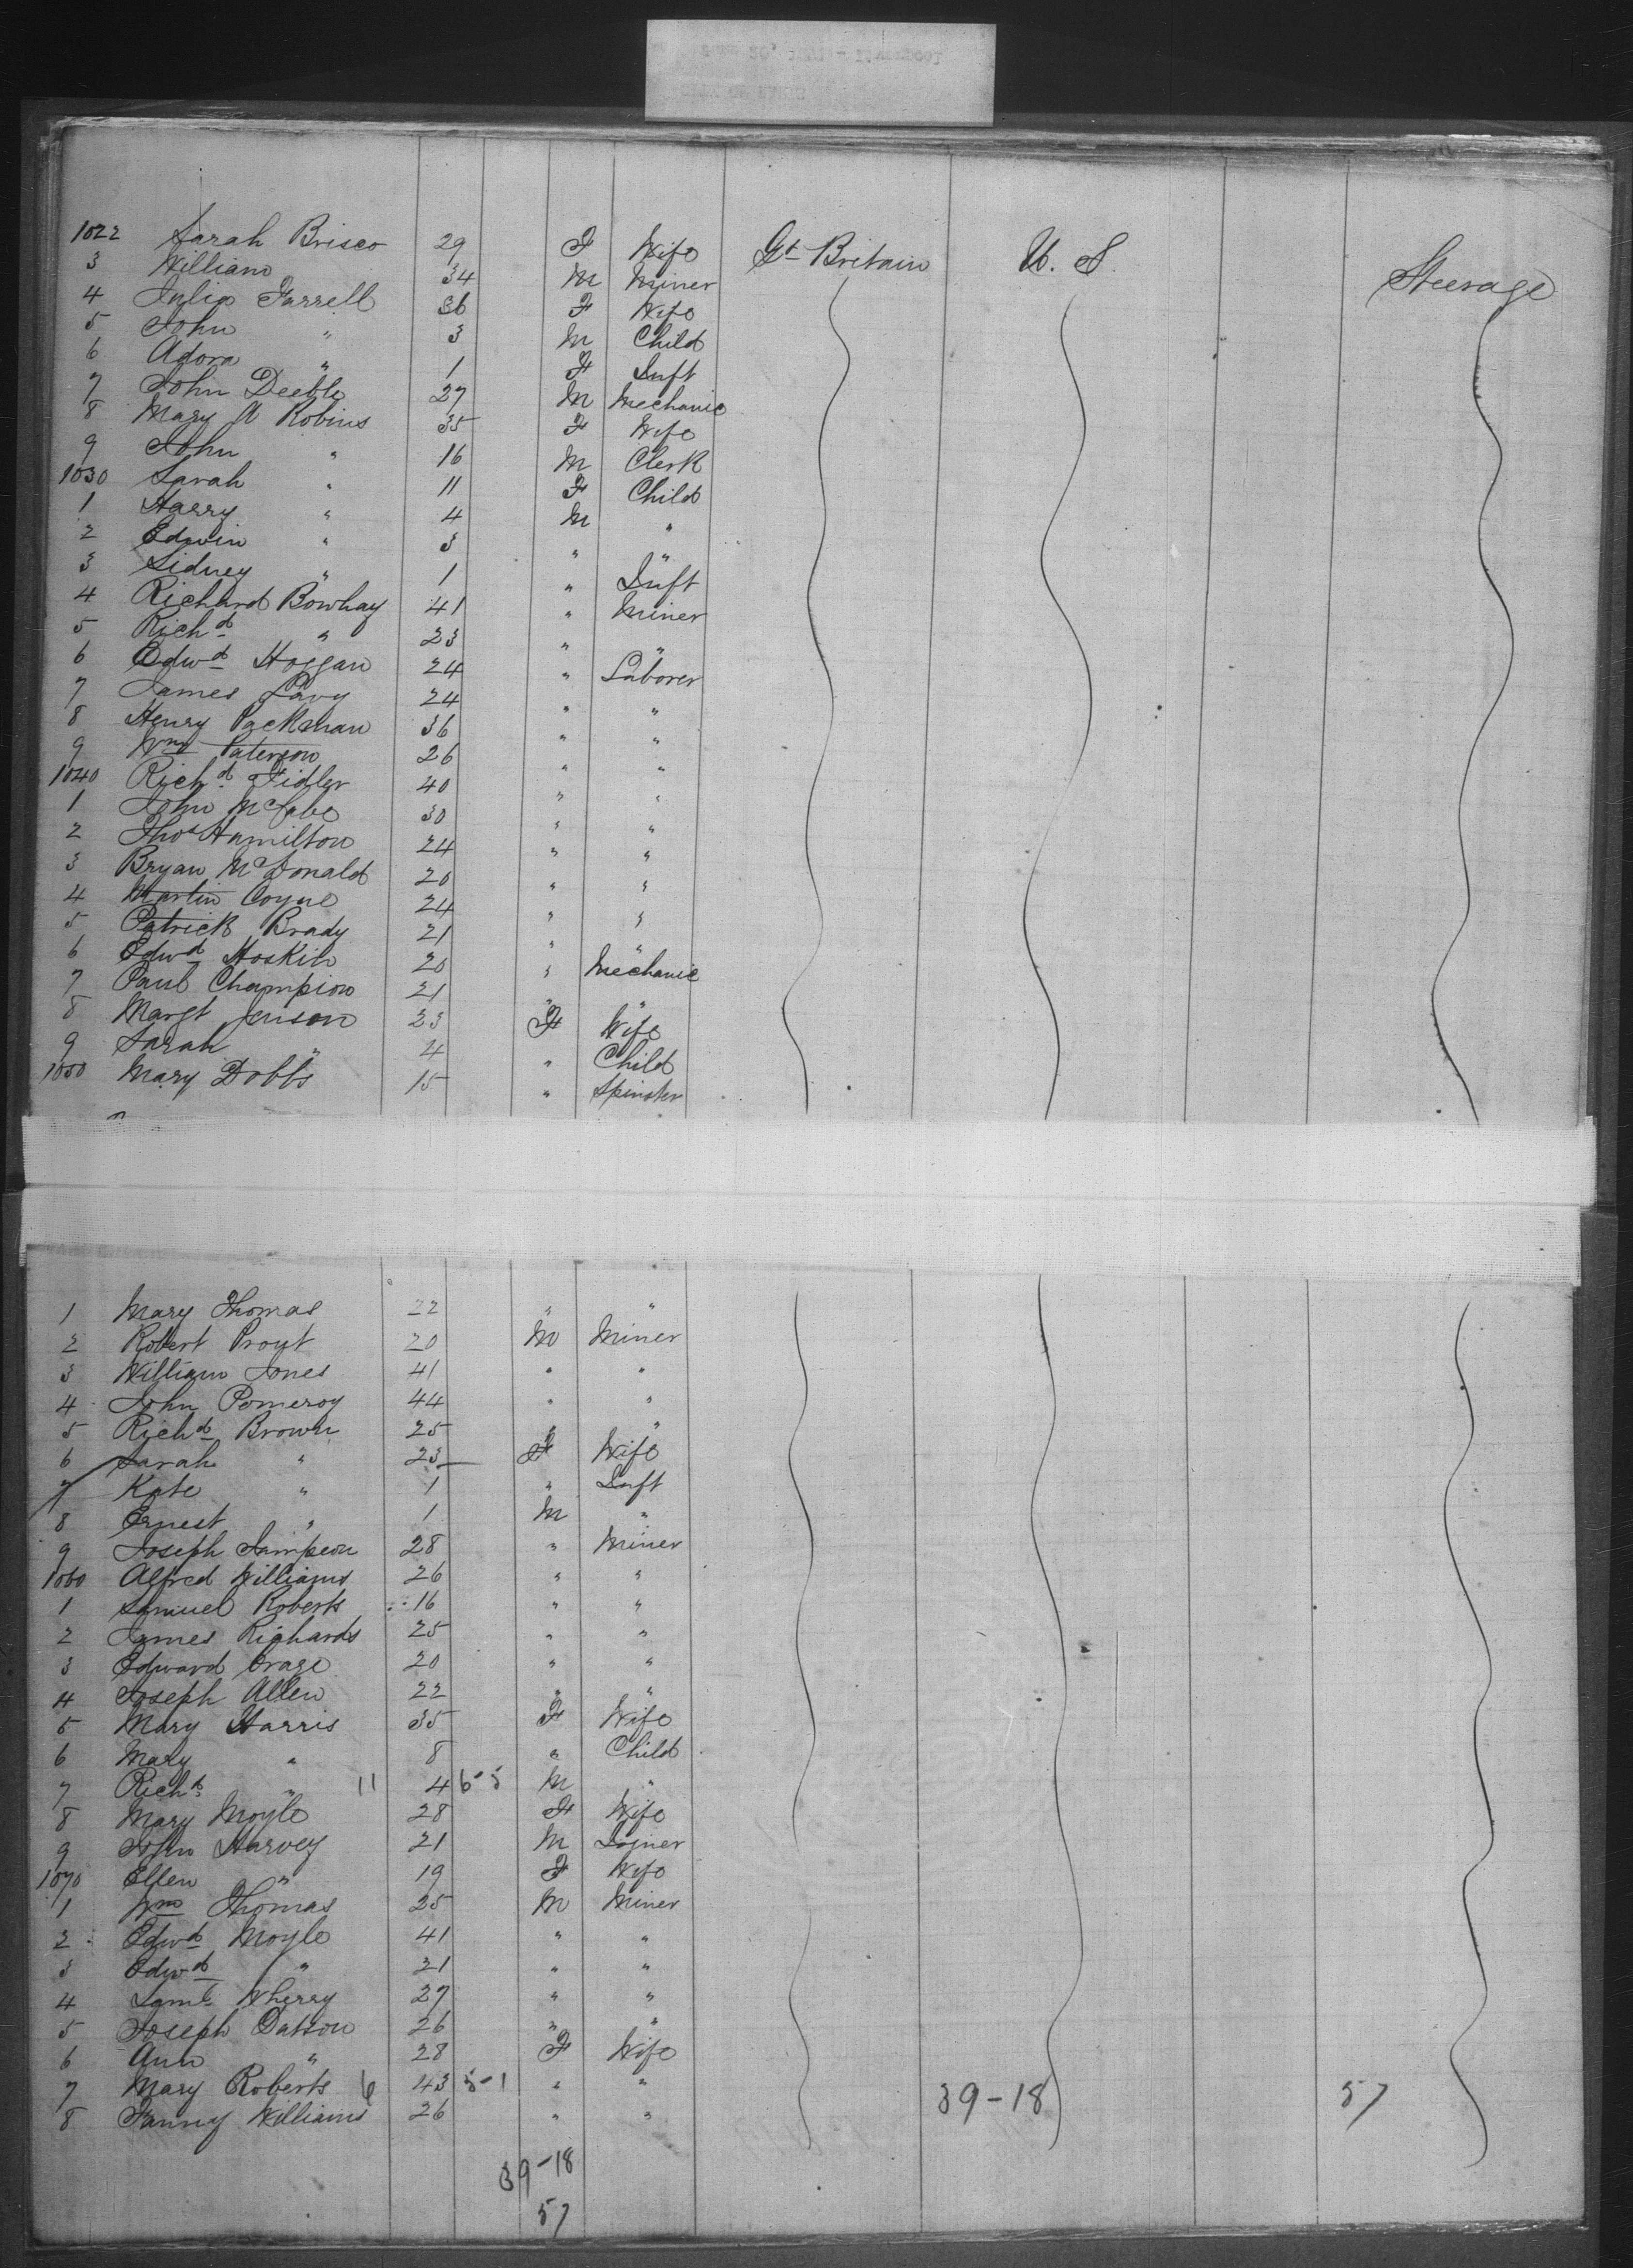 1022 Sarah Brisco 29 F Wife Gt Britain U. S. Steerage
3 William 34 M Miner
4 Julia Farrell 36 F Wife
5 John " 3 M Child
6 Adora " 1 F Inft
7 John Deeble 27 M Mechanic
8 Mary A Robins 35 F Wife
9 John " 16 M Clerk
1030 Sarah " 11 F Child
1 Harry " 4 M "
2 Edwin " 3 " "
3 Sidney " 1 " Inft
4 Richard Bowhay 41 " Miner
5 Richd " 23 " "
6 Edwd Hoggan 24 " Laborer
7 James Lavy 24 " "
8 Henry Packman 36 " "
9 Wm Paterson 26 " "
1040 Richd Fidler 40 " "
1 John McCabe 30 " "
2 Thos Hamilton 24 " "
3 Bryan McDonald 20 " "
4 Martin Coyne 24 " "
5 Patrick Brady 21 " "
6 Edwd Hoskin 20 " Mechanic
7 Paul Champion 21 " "
8 Margt 23 F Wife
9 Sarah " 4 " Child
1050 Mary Dobbs 15 " Spinster
1 Mary Thomas 22 " "
2 Robert Prout 20 M Miner
3 William Jones 41 " "
4 John Pomeroy 44 " "
5 Richd Brown 25 " "
6 Sarah " 23 F Wife
7 Kate " 1 " Inft
8 Ernest " 1 M "
9 Joseph Sampson 28 " Miner
1060 Alfred Williams 26 " "
1 Samuel Roberts 16 " "
2 James Richards 25 " "
3 Edward Craze 20 " "
4 Joseph Allen 22 " "
5 Mary Harris 35 F Wife
6 Mary " 8 " Child
7 Richd " 11 4 6-5 M "
8 Mary Moyle 28 F Wife
9 John Harvey 21 M Joiner
1070 Ellen " 19 F Wife
1 Wm Thomas 25 M Miner
2 Edwd Moyle 41 " "
3 Edwd " 21 " "
4 Saml Wherry 27 " "
5 Joseph Datson 26 " "
6 Ann " 28 F Wife
7 Mary Roberts 6 43 5-1 " " 39-18 57
8 Fanny Williams 26 " "
39-18
57